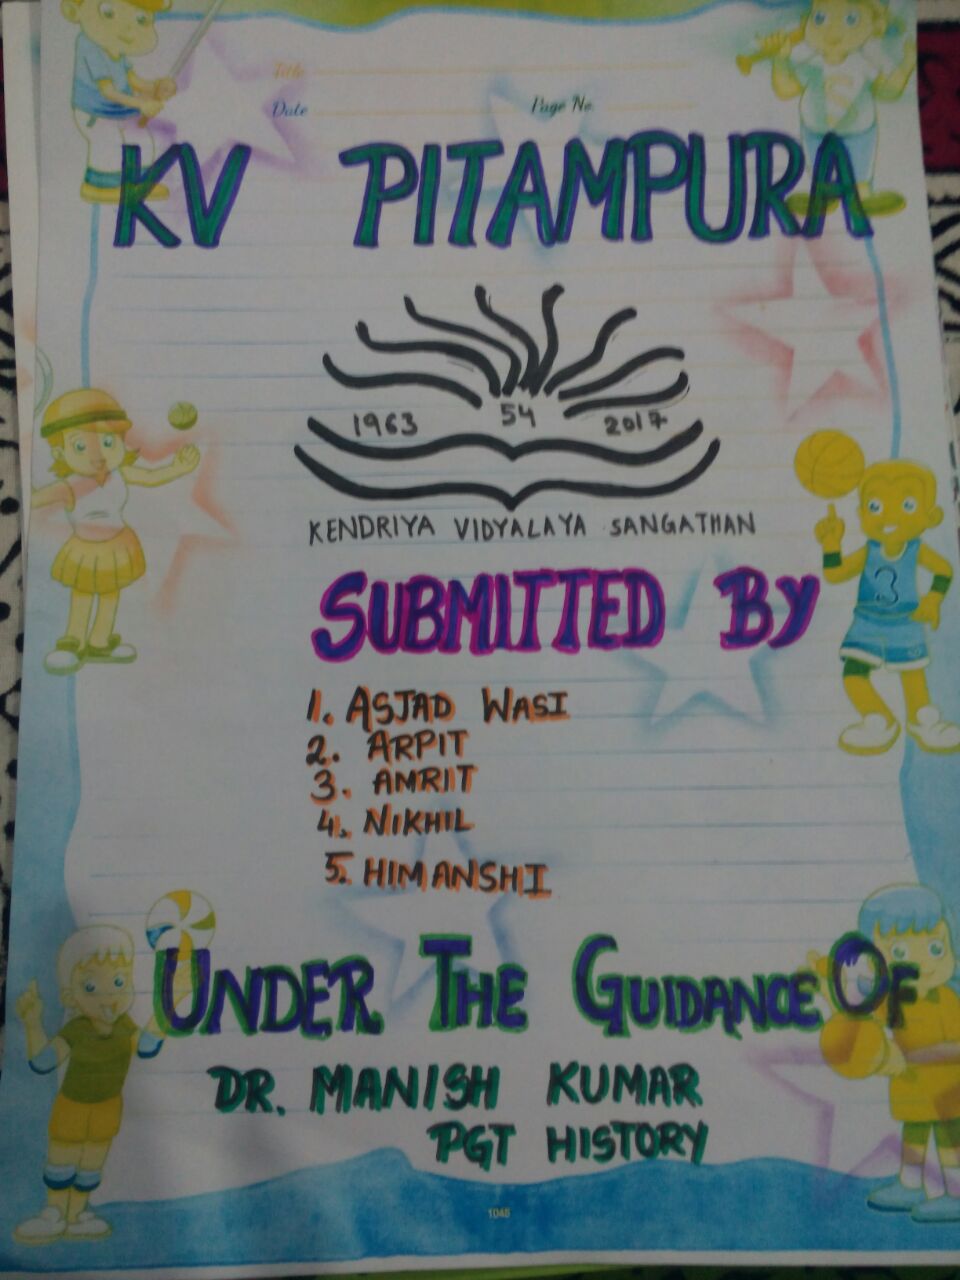 Title
Date Page No.
KV PITAMPURA
1963 54 2017
KENDRIYA VIDYALAYA SANGATHAN
SUBMITTED BY
1. ASJAD WASI
2. ARPIT
3. AMRIT
4. NIKHIL
5. HIMANSHI
UNDER THE GUIDANCE OF
DR. MANISH KUMAR
PGT HISTORY
3
1045